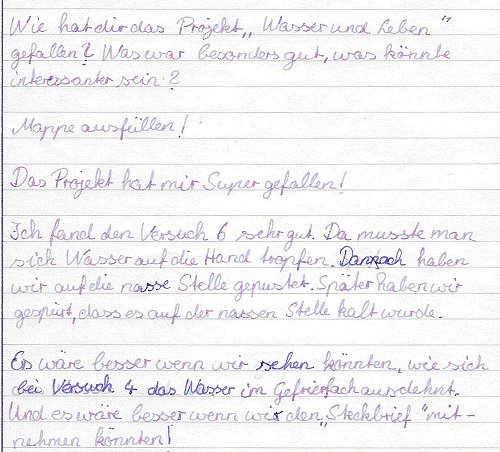 Wie hat dir das Projekt „Wasser und Leben"
gefallen? Was war besonders gut, was könnte
interessanter sein?
Mappe ausfüllen!
Das Projekt hat mir Super gefallen!
Ich fand den Versuch 6 sehr gut. Da musste man
sich Wasser auf die Hand tropfen. Danach haben
wir auf die nasse Stelle gepustet. Später haben wir
gespürt, dass es auf der nassen Stelle kalt wurde.
Es wäre besser wenn wir sehen könnten, wie sich
bei Versuch 4 das Wasser im Gefrierfach ausdehnt.
Und es wäre besser wenn wir den „Steckbrief" mit-
nehmen könnten!